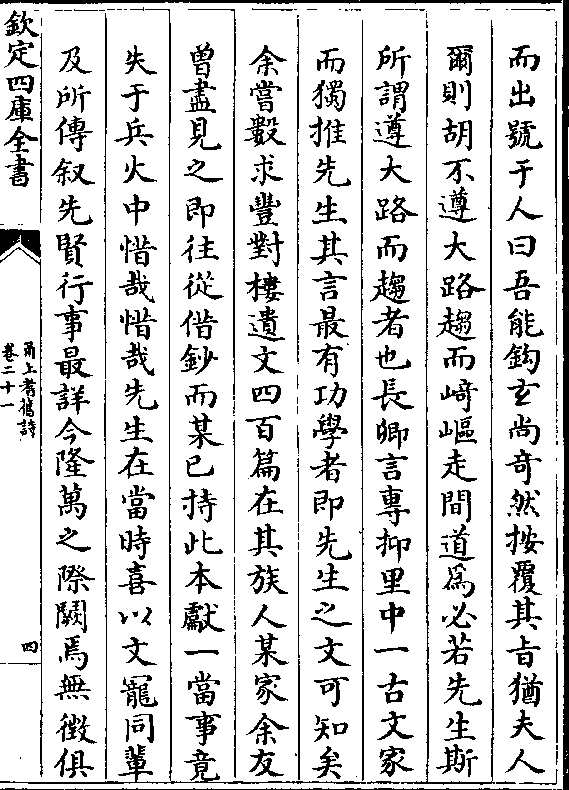 而出號于人曰吾能鈎玄尚奇然按覆其旨猶夫人
爾則胡不遵大路趨而﨑嶇走間道為必若先生斯
所謂遵大路而趨者也長卿言專抑里中一古文家
而獨推先生其言最有功學者即先生之文可知矣
余嘗數求豐對樓遺文四百篇在其族人某家余友
曽盡見之即往從借鈔而某已持此本獻一當事竟
失于兵火中惜哉惜哉先生在當時喜以文寵同輩
及所傳叙先賢行事最詳今隆萬之際闕焉無徵俱
欽定四庫全書
甬上耆舊詩
卷二十一
四